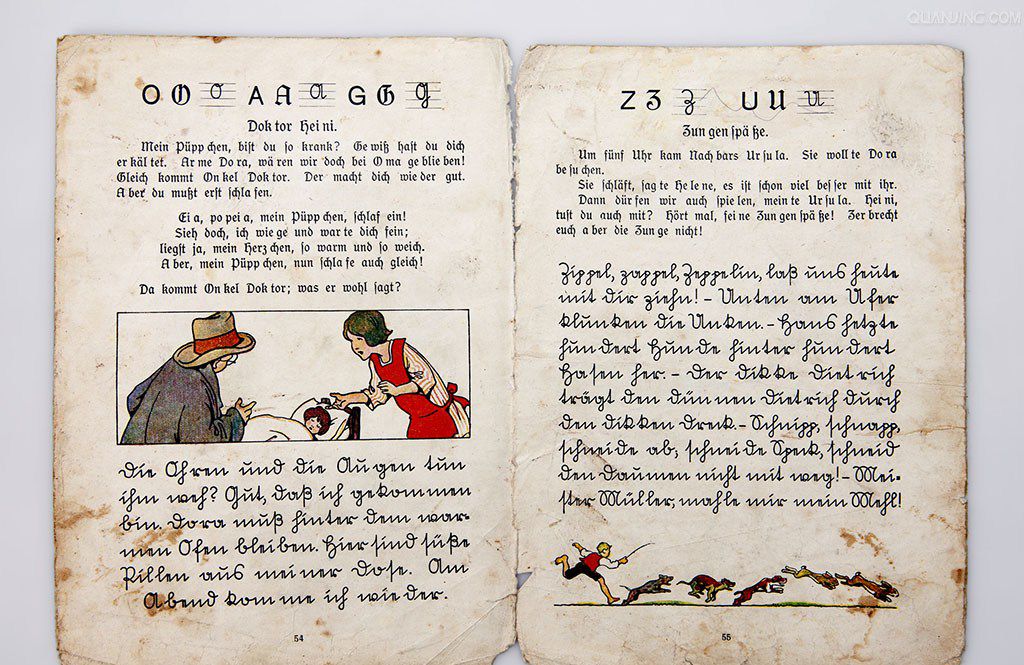 QUANJING.COM
O O o A A a G G g
Dok tor Hei ni.
Mein Püpp chen, bist du so krank? Ge wiß hast du dich
er käl tet. Ar me Do ra, wä ren wir doch bei O ma ge blie ben!
Gleich kommt On kel Dok tor. Der macht dich wie der gut.
A ber du mußt erst schla fen.
Ei a, po pei a, mein Püpp chen, schlaf ein!
Sieh doch, ich wie ge und war te dich fein;
liegst ja, mein Herz chen, so warm und so weich.
A ber, mein Püpp chen, nun schla fe auch gleich!
Da kommt On kel Dok tor; was er wohl sagt?
Die Ohren und die Au gen tun
ihm weh? Gut, daß ich ge kom men
bin. Dora muß hinter dem war-
men Ofen bleiben. Hier sind süße
Pillen aus mei ner Dose. Am
Abend kom me ich wie der.
54
Z Z Z U U U
Zun gen spä ße.
Um fünf Uhr kam Nach bars Ur su la. Sie woll te Do ra
be su chen.
Sie schläft, sag te He le ne, es ist schon viel bes ser mit ihr.
Dann dür fen wir auch spie len, mein te Ur su la. Hei ni,
tust du auch mit? Hört mal, fei ne Zun gen spä ße! Zer brecht
euch a ber die Zun ge nicht!
Zippel, zappel, Zeppelin, laß uns heute
mit dir ziehn! – Unten am Ufer
klunken die Unken. – Hans hetzte
hun dert Hun de hinter hun dert
Hasen her. – Der dikke Diet rich
trägt den dün nen Diet rich durch
den dik ken Dreck. – Schnipp, schnapp,
schneide ab; schneide Speck, schneid
den Daumen nicht mit weg! – Mei-
ster Müller, mahle mir mein Mehl!
55